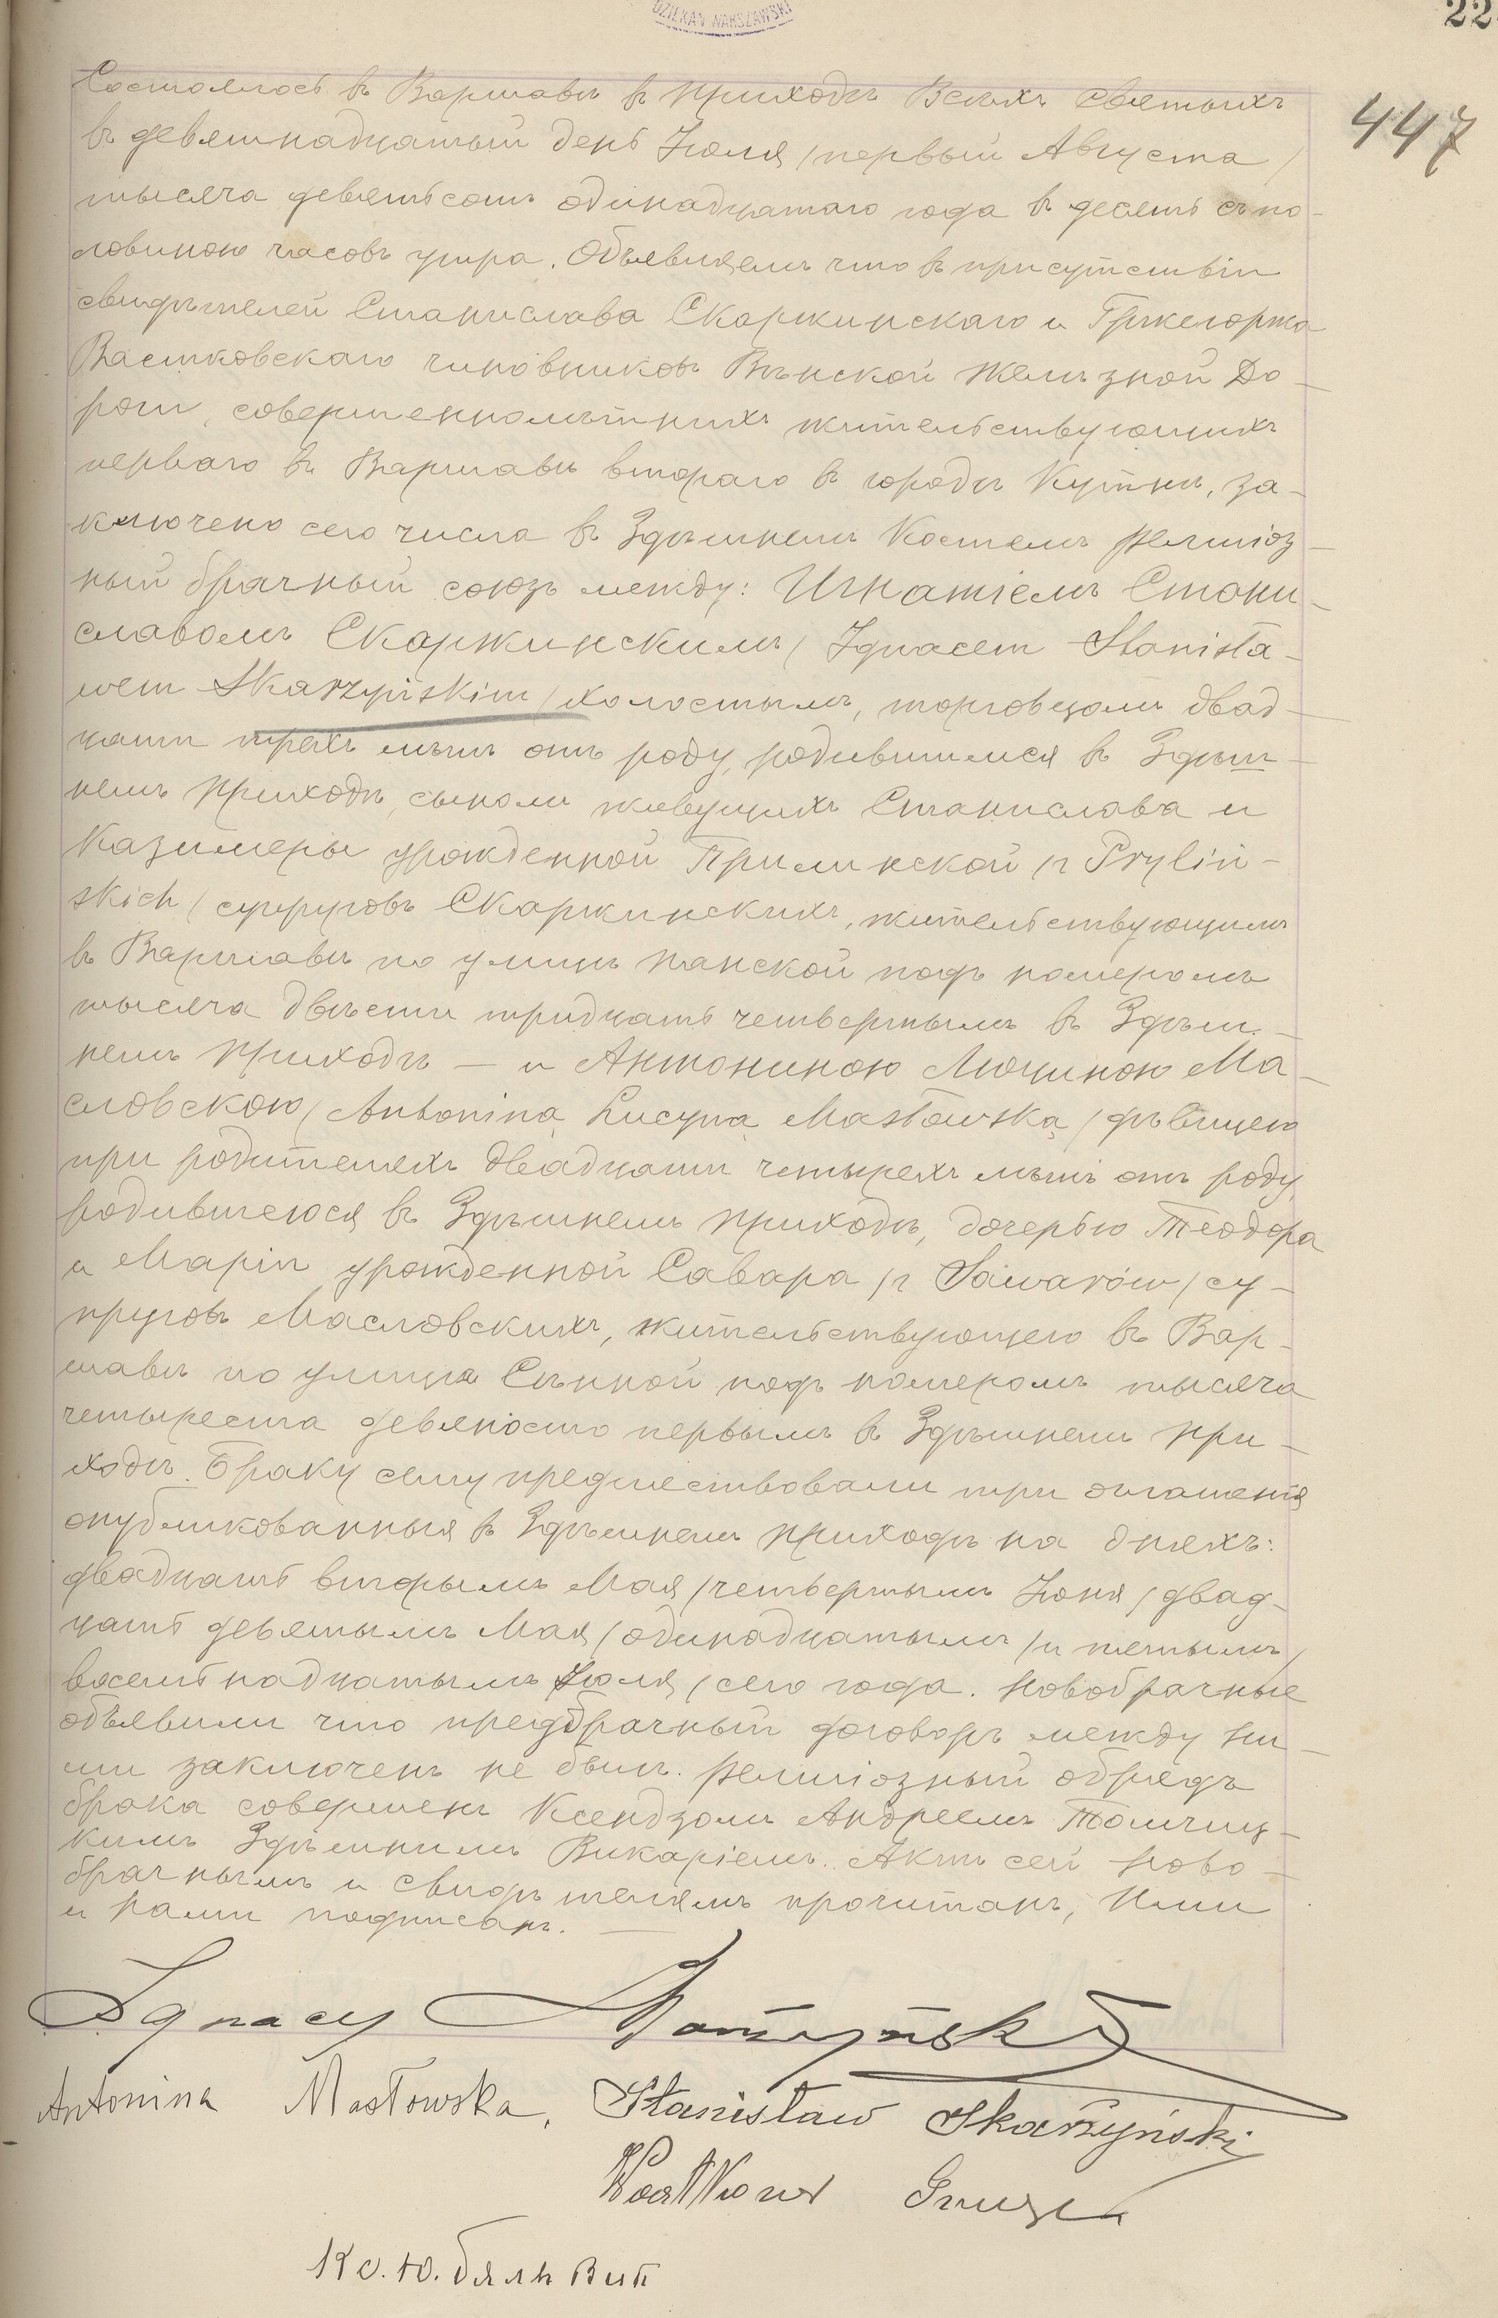 DZIEKAN WARSZAWSKI
22
447
Состоялось въ Варшавѣ въ приходѣ Всѣхъ Святыхъ
въ девятнадцатый день Іюля /первый Августа/
тысяча девятьсотъ одинадцатаго года въ десять съ по-
ловиною часовъ утра. Объявляемъ что въ присутствіи
свидѣтелей Станислава Скаржинскаго и Гржегоржа
чиновниковъ Вѣнской Желѣзной До-
роги, совершеннолѣтнихъ жительствующихъ
перваго въ Варшавѣ втораго въ городѣ Кутнѣ, за-
ключено сего числа въ Здѣшнемъ Костелѣ религіоз-
ный брачный союзъ между: Игнатіемъ Стани-
славомъ Скаржинскимъ /Ignacem Stanisła-
wem Skarzyńskim/ холостымъ, торговцомъ двад-
цати трехъ лѣтъ отъ роду, родившимся въ Здѣш-
немъ приходѣ, сыномъ живущихъ Станислава и
Казимеры урожденной Прилинской /z Pryliń-
skich/ супруговъ Скаржинскихъ, жительствующимъ
въ Варшавѣ по улицѣ Панской подъ номеромъ
тысяча двѣсти тридцать четвертымъ въ Здѣш-
немъ приходѣ — и Антониною Люциною Ма-
словскою /Antoniną Lucyną Masłowską/ дѣвицею
при родителяхъ двадцати четырехъ лѣтъ отъ роду,
родившеюся въ Здѣшнемъ приходѣ, дочерью Теодора
и Маріи урожденной Савара /z Sawarów/ су-
пруговъ Масловскихъ, жительствующею въ Вар-
шавѣ по улица Сѣнной подъ номеромъ тысяча
четыреста девяносто первымъ въ Здѣшнемъ при-
ходѣ. Браку сему предшествовали три оглашенія
опубликованныя въ Здѣшнемъ приходѣ на дняхъ:
двадцать вторымъ Мая /четвертымъ Іюня/ двад-
цать девятымъ Мая /одинадцатымъ/ и пятымъ/
восемьнадцатымъ Іюля/ сего года. Новобрачные
объявили что предбрачный договоръ между ни-
ми заключенъ не былъ. Религіозный обрядъ
брака совершенъ Ксендзомъ Андреемъ
Здѣшнимъ Викаріемъ. Актъ сей Ново-
брачнымъ и свидѣтелямъ прочитанъ, Ими
и Нами подписанъ. —
Ignacy Skarzyński
Antonina Masłowska, Stanisław Skarżyński